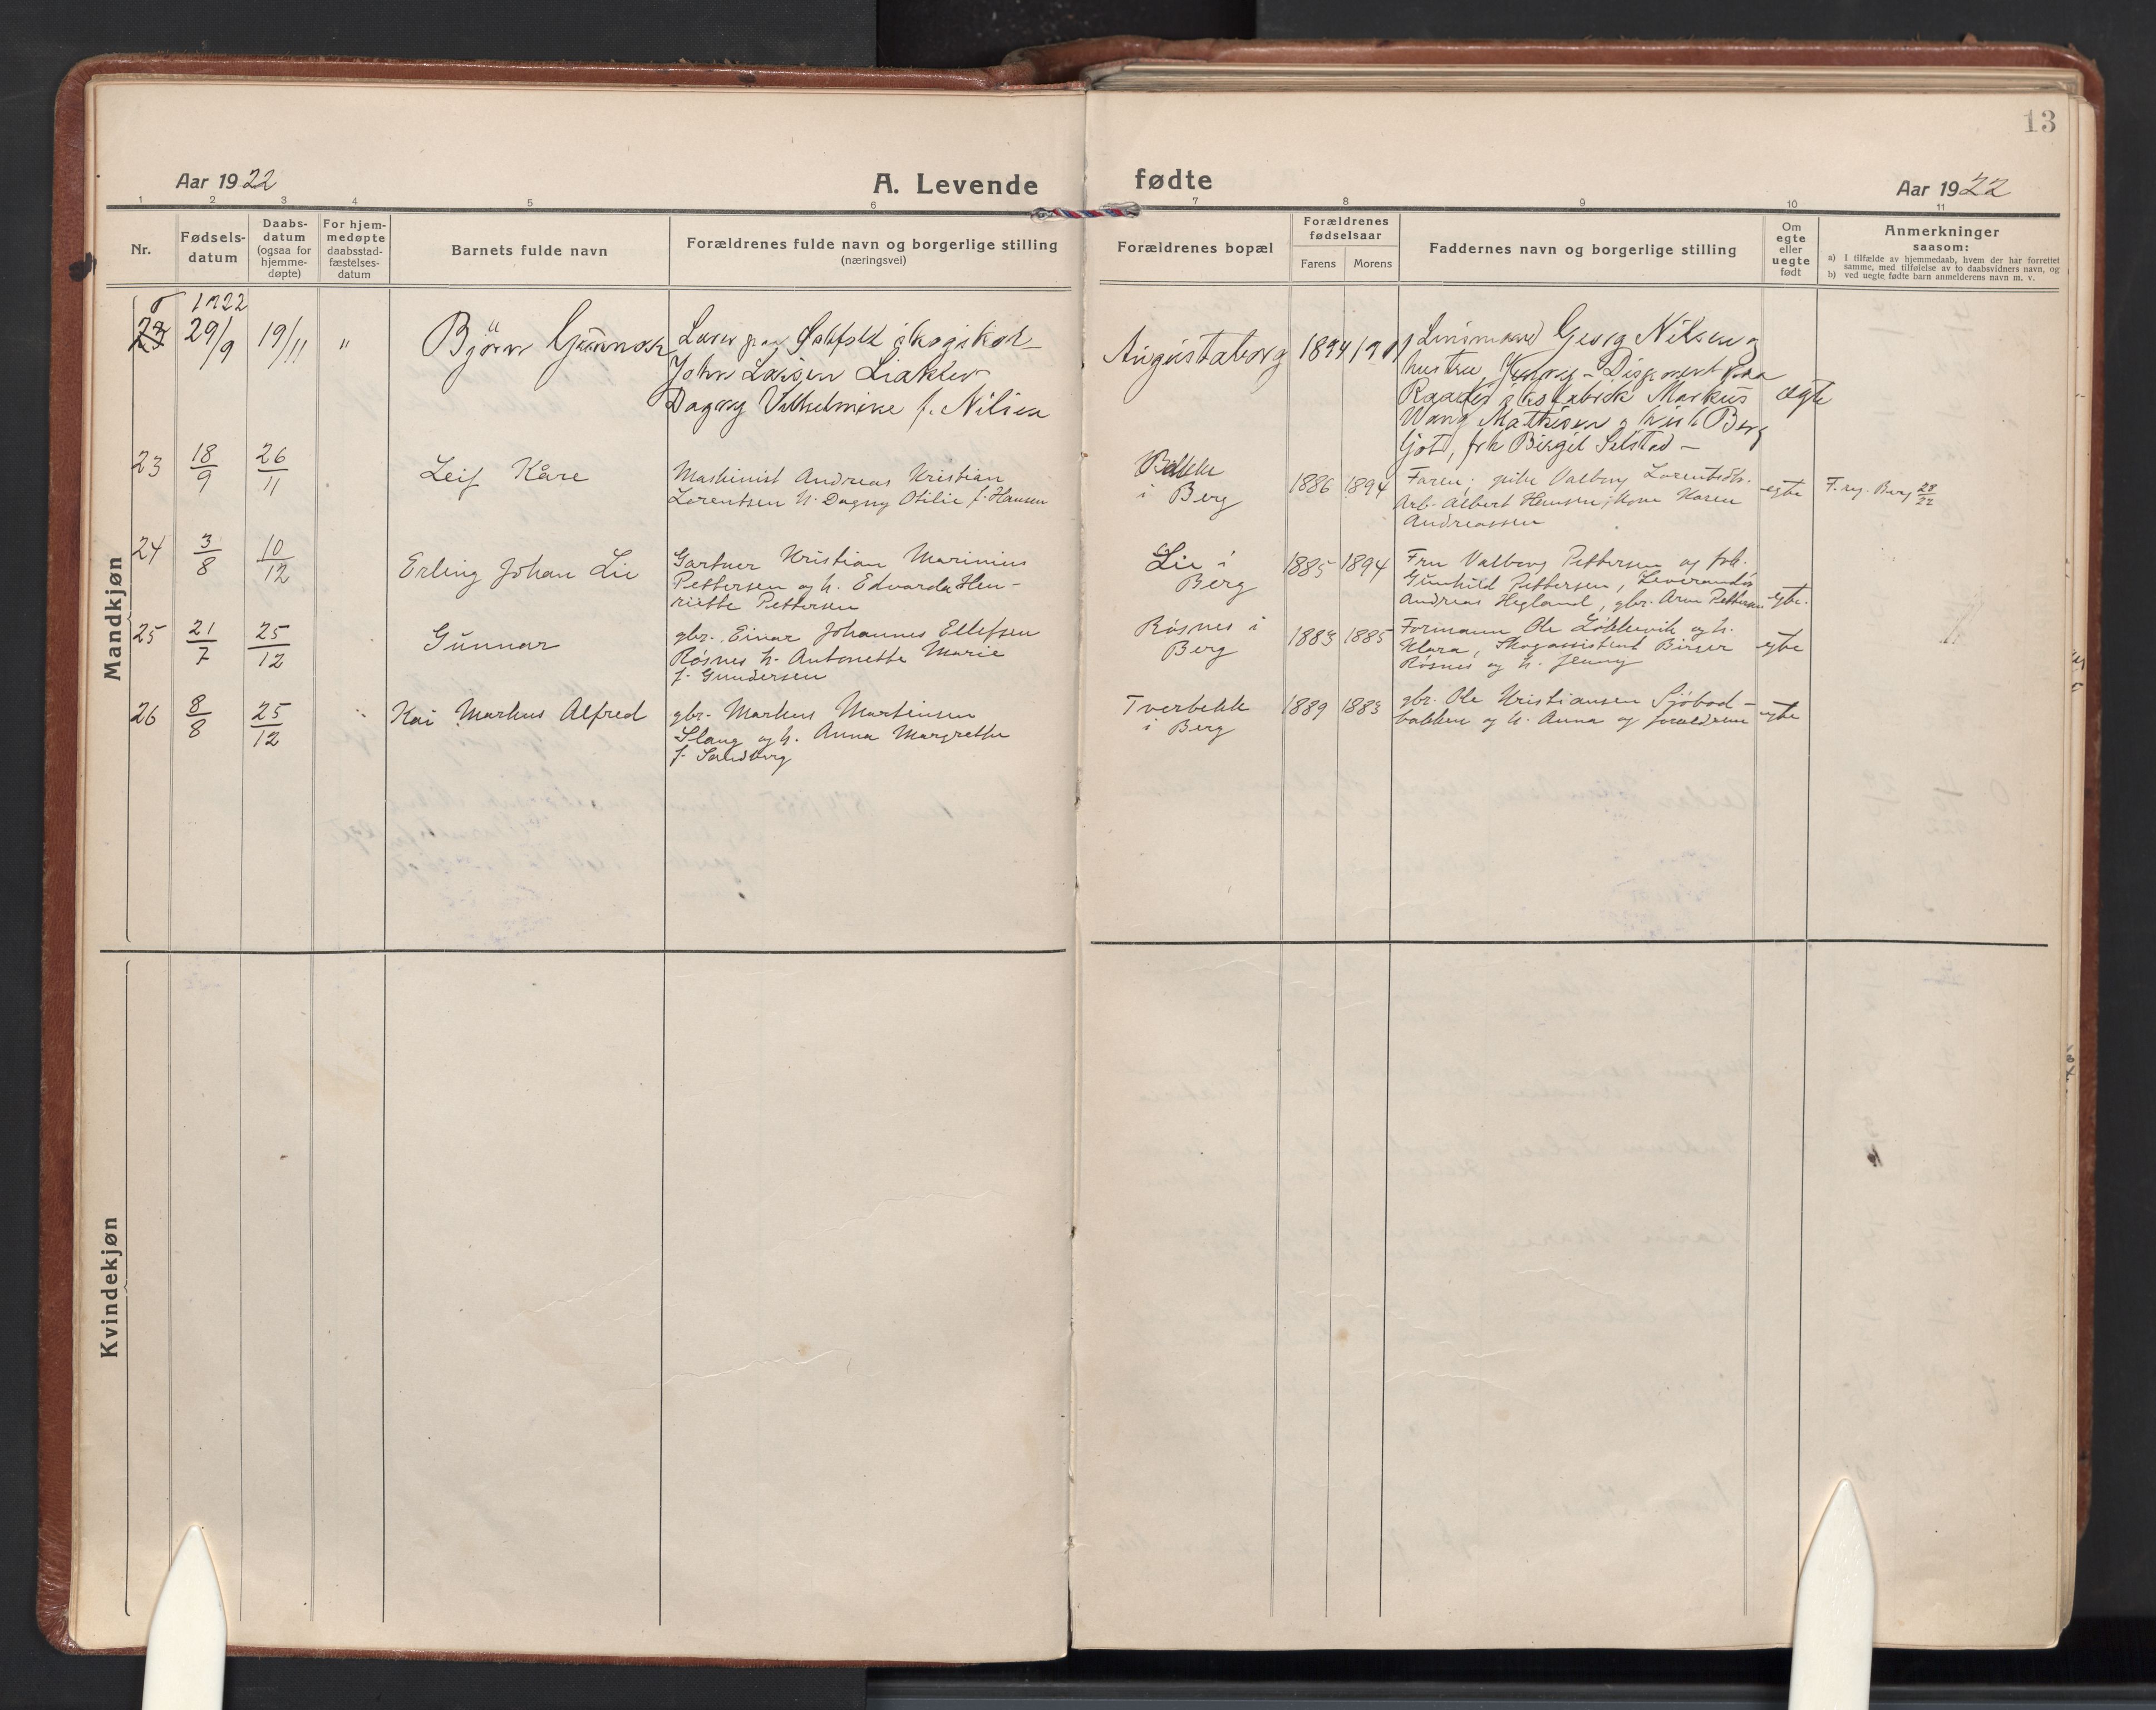 13
Aar 1922
A. Levende
fødte
Aar 1922
1 2 3 4 5 6 7 8 9 10 11
Nr.
Fødsels-
datum
Daabs-
datum
(ogsaa for
hjemme-
døpte)
For hjem-
medøpte
daabsstad-
fæstelses-
datum
Barnets fulde navn
Forældrenes fulde navn og borgerlige stilling
(næringsvei)
Forældrenes bopæl
Forældrenes
fødselsaar
Farens Morens
Faddernes navn og borgerlige stilling
Om
egte
eller
uegte
født
Anmerkninger
saasom:
a) I tilfælde av hjemmedaab, hvem der har forrettet
samme, med tilføielse av to daabsvidners navn, og
b) ved uegte fødte barn anmelderens navn m. v.
Mandkjøn
1922
29/9 19/11 "
Bjørn Gunnar
Lærer paa skogskol-
John Larsen Liaklev
Dagny Vilhelmine f. Nilsen
Augustaborg
1894 1901
Lensmand Georg Nilsen og
hustru Disponent
Markus
Wang Mathisen og hust. Berg
ljot, frk Birgit Selstad -
ægte
23 18/9 26/11
Leif Kåre
Maskinist Andreas Kristian
Lorentsen h. Dagny Otilie f. Hansen
Bakke
i Berg
1886 1894
Faren, pike Valborg
Arb. Albert Hansen, kone Karen
Andreassen
egte
F. reg. Berg 28/22
24 3/8 10/12
Erling Johan Lie
Gartner Kristian Marinius
Pettersen og h. Edvarda Hen-
riette Pettersen
Lie i
Berg
1885 1894
Fru Valborg Pettersen og frk.
Gunhild Pettersen, Leverandør
Andreas Hegland, gbr. Arne Pettersen
egte.
25 21/7 25/12
Gunnar
gbr. Einar Johannes Ellefsen
Røsnes h. Antonette Marie
f. Gundersen
Røsnes i
Berg
1883 1885
Formann Ole Løkkevik og h.
Klara, Skogassistent Birger
Røsnes og h. Jenny
egte
26 8/8 25/12 "
Kai Markus Alfred
gbr. Markus Martinsen
Slang og h. Anna Margrethe
f. Sandberg
Tverbekk
i Berg
1889 1883
gbr. Ole Kristiansen Sjøbod-
bakken og h. Anna og foreldrene
egte
Kvindekjøn